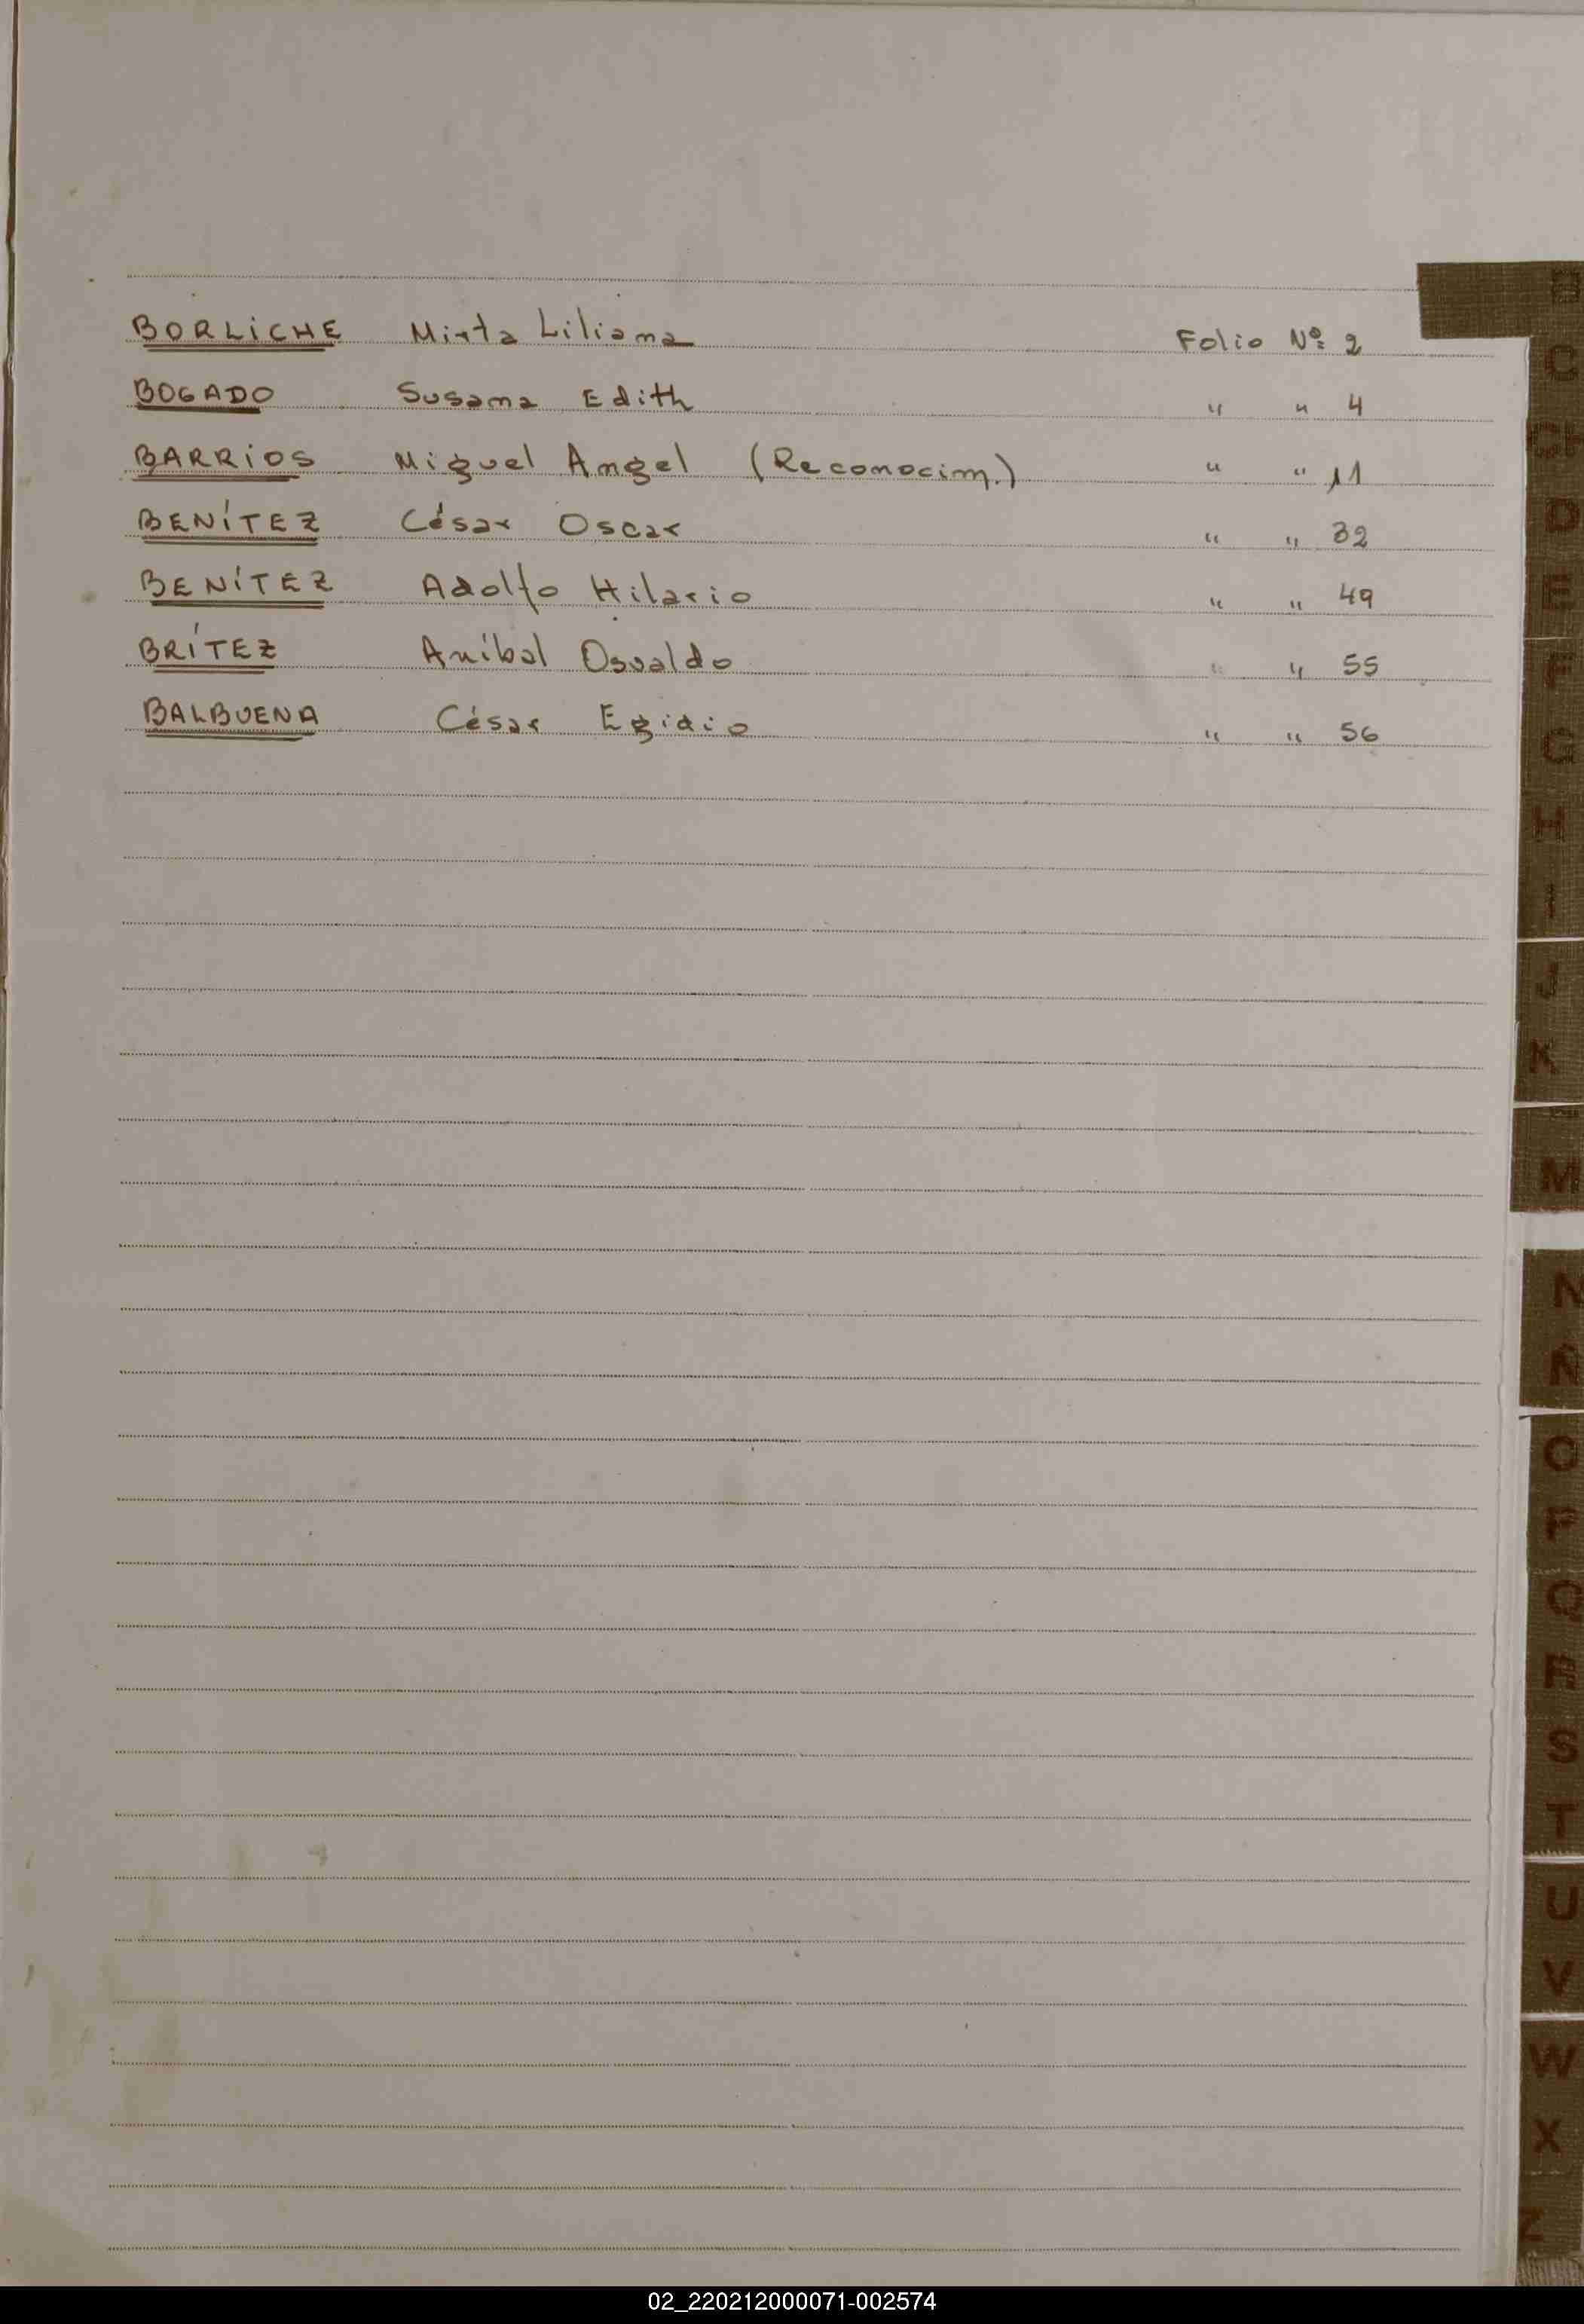 BORLICHE Mirta Liliana Folio Nº 2
BOGADO Susana Edith " " 4
BARRIOS Miguel Angel (Reconocim.) " " 11
BENÍTEZ César Oscar " " 32
BENÍTEZ Adolfo Hilario " " 49
BRÍTEZ Aníbal Osvaldo " " 55
BALBUENA César Egidio " " 56
B
C
CH
D
E
F
G
H
I
J
K
M
N
Ñ
O
P
Q
R
S
T
U
V
W
X
Z
02_220212000071-002574